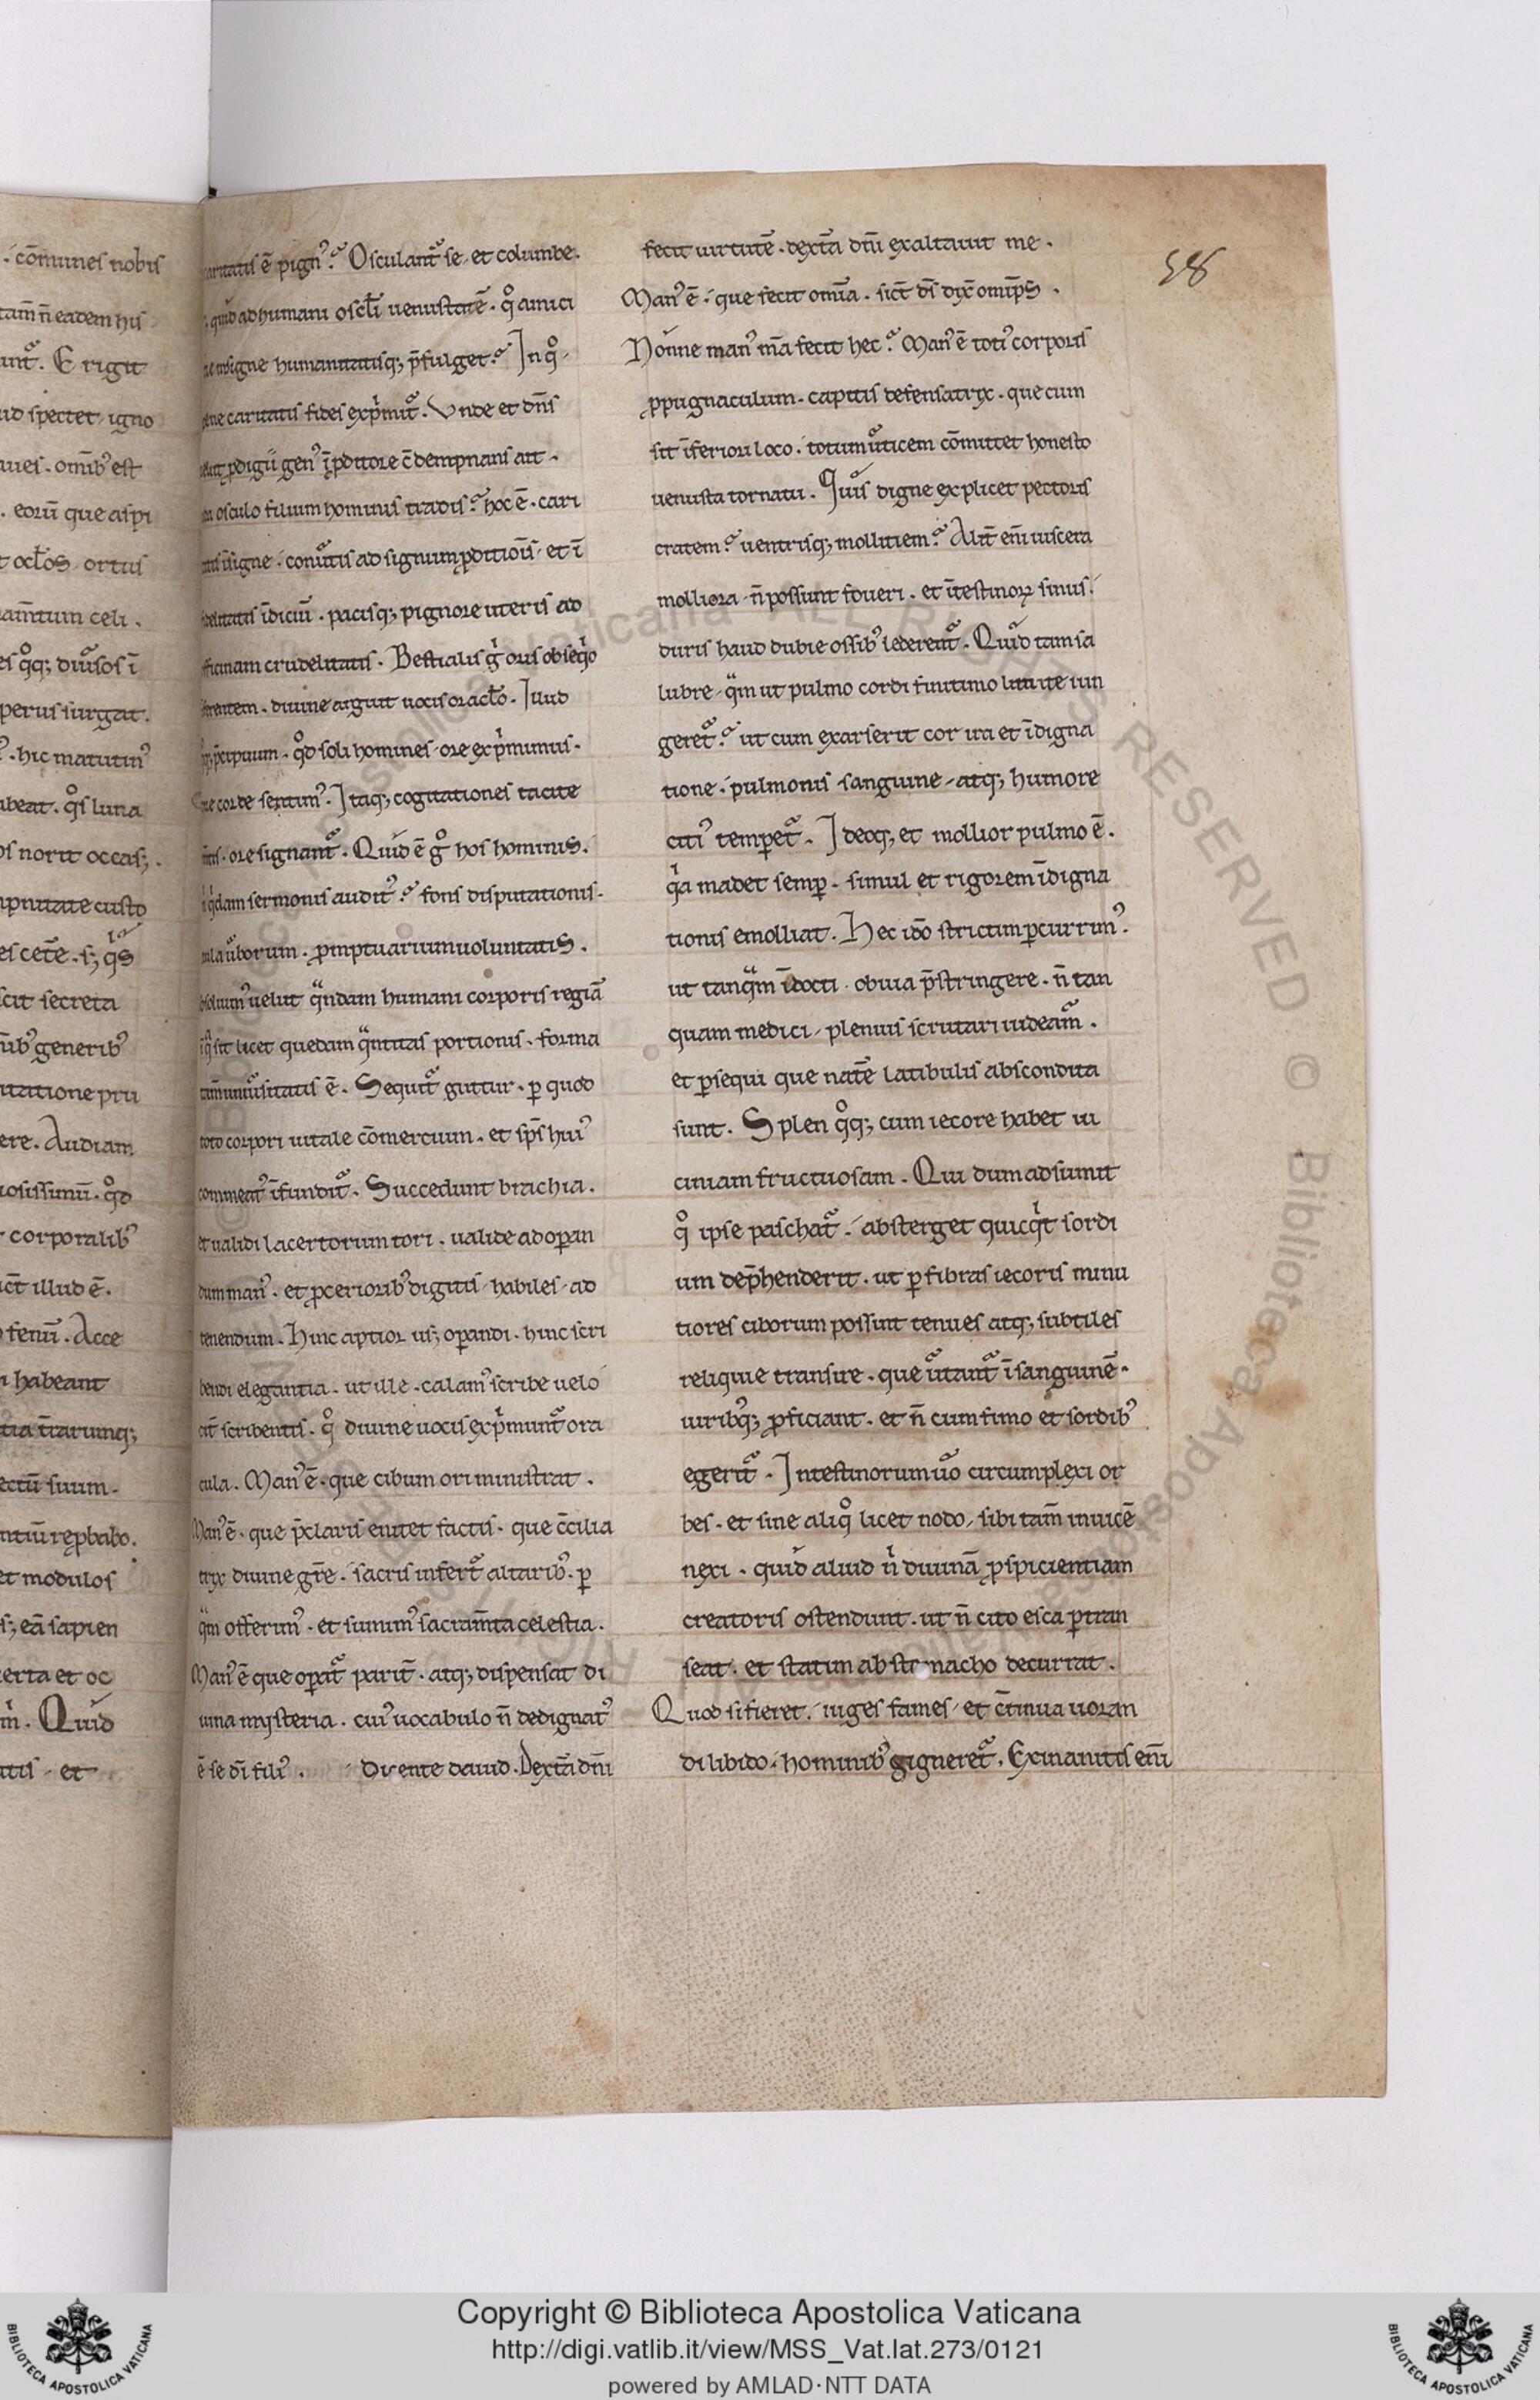 . cōmunes nobis
tam̄ n̄ eadem his
unt᷑. Erigit
ud spectet igno
aues. omīb᷒ est
. eorū que aspi
t oclōs ortus
am̄tum celi.
es qͦq; diu᷑sos ī
perus surgat.
᷒. hic matutin᷒
abeat. qͦs luna
os norit occas;.
npnitate custo
es cet̄e. s; qͦs
scit secreta
ūib᷒ generib᷒
utatione pru
ere. Audiam
iosissimū. qͦd
corporalib᷒
ict̄ illud ē.
fenū. Acce
n habeant
tia t̄rarumq;
ectū suum.
ntiū rep̱babo.
et modulos
s; eā sapien
erta et oc
Quid
utis. et
caritatis ē pign᷒.᷑ Osculant᷑ se. et columbe.
quid ad humani osclī uenustatē. qͦ amici
insigne humanitatisq; p̄fulget.᷑ In qͦ
caritatis fides exp͛mit᷑. Vnde et dn̄s
gen᷒ ī p̱ditore c̄dempnans ait.
osculo filium hominis tradis.᷑ hoc ē. cari
īsigne. conu᷑tis ad signum p̱ditiōis. et ī
idelitatis īdiciū. pacisq; pignore uteris ad
officinam crudelitatis. Bestialis g͛ oris obseq͛o
diuine arguit uocis oraclō. Iuud
p̄cipuum. qͦd soli homines. ore exp͛mimus.
corde sentim᷒. Itaq; cogitationes tacite
ore signant᷑. Quid ē gͦ hos hominis.
q͛dam sermonis audit᷒.᷑ fons disputationis.
aula u᷑borum. p̱mptuarium uoluntatis.
absoluim᷒ uelut qᷓndam humani corporis regiā
sit licet quedam qᷓntitas portionis. forma
tam̄ uniu᷑sitatis ē. Sequit᷑ guttur. p̱ quod
toto corpori uitale cōmercium. et sp̄s hui᷒
commeat᷒ īfundit᷑. Succedunt brachia.
et ualidi lacertorum tori. ualide ad op̱an
dum man᷒. et p̱ceriorib᷒ digitis. habiles. ad
tenendum. Hinc aptior us; op̱andi. hinc scri
bendi elegantia. ut ille. calam᷒ scribe uelo
cit̄ scribentis. qͦ diuine uocis exp͛munt᷑ ora
cula. Man᷒ ē. que cibum ori ministrat.
Man᷒ ē. que p̄claris enitet factis. que c̄cilia
trix diuine gr̄e. sacris infert᷑ altarib᷒. p̱
qᷓm offerim᷒. et sumim᷒ sacram̄ta celestia.
Man᷒ ē que op̱at᷑ parit̄. atq; dispensat di
uina mysteria. cui᷒ uocabulo n̄ dedignat᷒
ē se dī fili᷒. Dicente dauid. Dext̄a dn̄i
fecit uirtutē. dext̄a dn̄i exaltauit me.
Man᷒ ē. que fecit omīa. sict̄ dī dix̄ omīp̄s.
Nonne man᷒ m̄a fecit hec.᷑ Man᷒ ē toti᷒ corporis
p̱pugnaculum. capitis defensatrix. que cum
sit īferiori loco. totum u᷑ticem cōmittet honesto
uenusta tornatu. Quis digne explicet pectoris
cratem.᷑ uentrisq; mollitiem.᷑ Alit̄ enī uiscera
molliora n̄ possunt foueri. et ītestinoꝝ sinus.
duris haud dubie ossib᷒ lederent᷑. Quid tam sa
lubre. qᷓm ut pulmo cordi finitimo limite iun
geret᷑.᷑ ut cum exarserit cor ira et īdigna
tione. pulmonis sanguine. atq; humore
citi᷒ temp̱et᷑. Ideoq; et mollior pulmo ē.
q͛a madet semp̱. simul et rigorem īdigna
tionis emolliat. Hec idō strictim p̱currim᷒.
ut tanqᷓm īdocti. obuia p̄stringere. n̄ tan
quam medici. plenius scrutari uideam᷑.
et p̱sequi que nat̄e latibulis abscondita
sunt. Splen qͦq; cum iecore habet ui
ciniam fructuosam. Qui dum adsumit
qͦ ipse paschat᷑. absterget quicq͛t sordi
um dep̄henderit. ut p̱ fibras iecoris minu
tiores ciborum possint tenues atq; subtiles
reliquie transire. que u᷑tant᷑ ī sanguinē.
uiribq; p̱ficiant. et n̄ cum fimo et sordib᷒
egerit᷑. Intestinorum uͦo circumplexi or
bes. et sine aliqͦ licet nodo. sibi tam̄ inuicē
nexi. quid aliud n͛ diuinā p̱spicientiam
creatoris ostendunt. ut n̄ cito esca p̱tran
seat. et statim ab stomacho decurrat.
Quod si fieret. iuges fames. et c̄tinua uoran
di libido. hominib᷒ gigneret᷑. Exinanitis enī
58
Copyright © Biblioteca Apostolica Vaticana
http://digi.vatlib.it/view/MSS_Vat.lat.273/0121
powered by AMLAD·NTT DATA
BIBLIOTECA APOSTOLICA VATICANA
BIBLIOTECA APOSTOLICA VATICANA